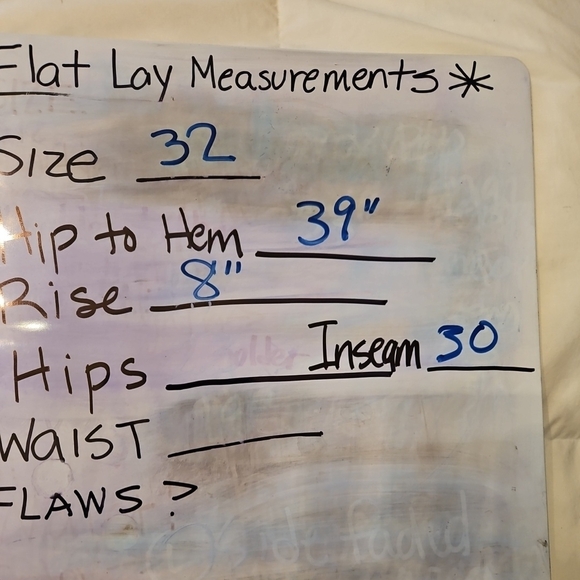 Flat Lay Measurements *
Size 32
Hip to Hem 39"
Rise 8"
Hips Inseam 30
WAIST
FLAWS ?